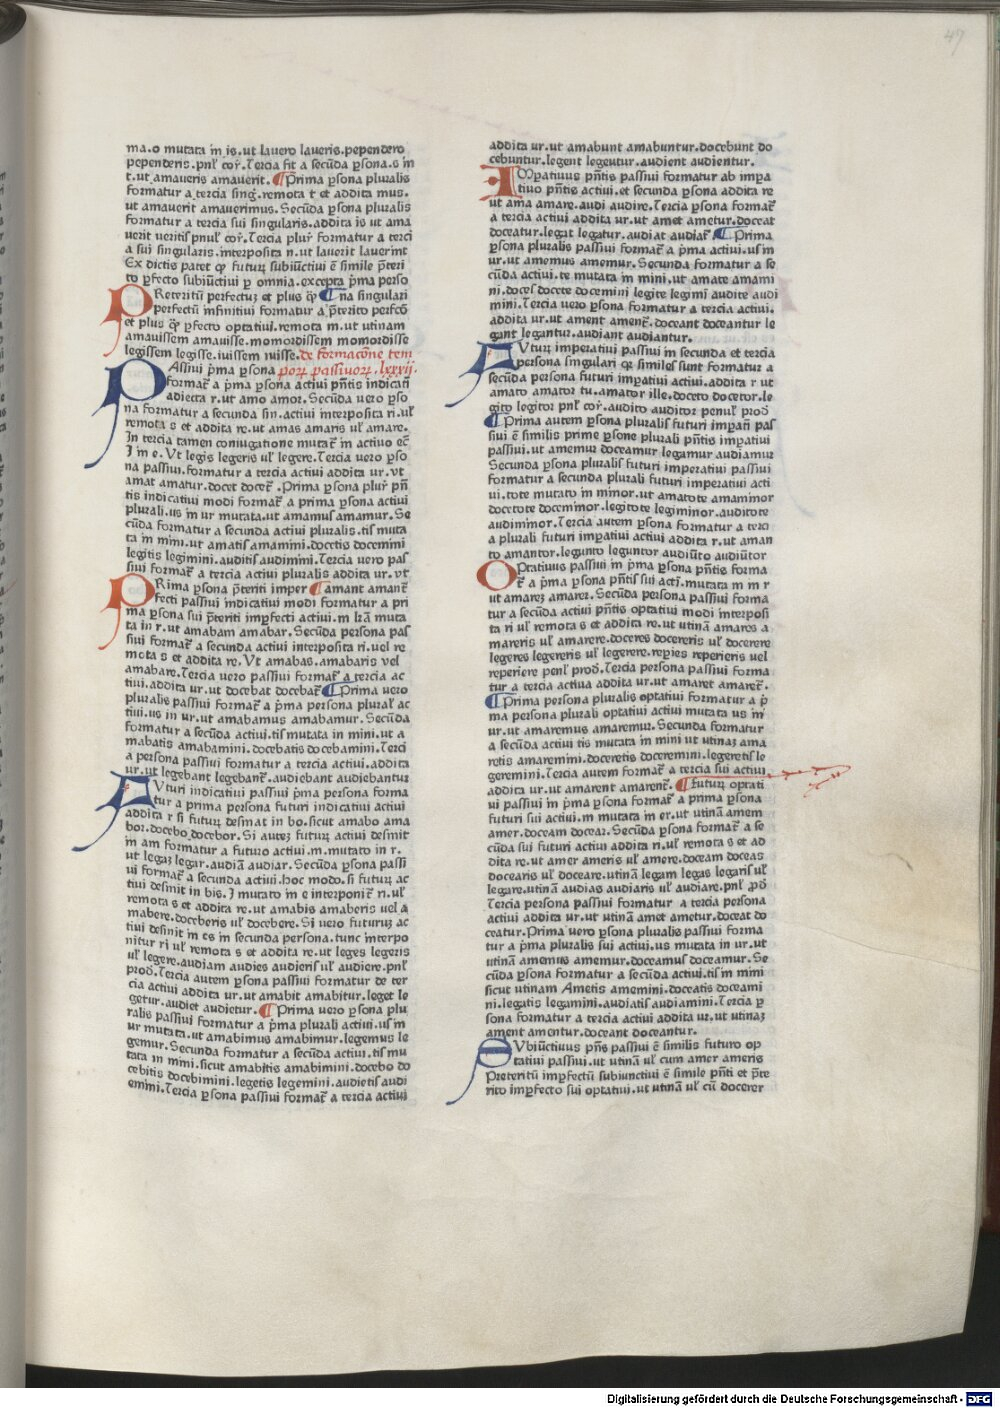 47
ma.o mutata in is.ut lauero laueris.pependero
pependeris.pnl᷑ cor̃.Tercia fit a secũda ꝑsona.s in
t.ut amaueris amauerit. ¶Prima ꝑsona pluralis
formatur a tercia sing.remota t et addita mus.
ut amauerit amauerimus. Secũda ꝑsona pluralis
formatur a tercia sui singularis.addita is ut ama
uerit ueritis pnul᷑ cor̃.Tercia plur̃ formatur a terci
a sui singularis.interposita n.ut lauerit lauerint
Ex dictis patet ꝙ futurꝫ subiũctiui ẽ simile p̃teri
to ꝑfecto subiũctiui ꝑ omnia.excepta p̃ma perso
PReteritũ perfectuꝫ et plus ꝙ̃ ¶na singulari
perfectũ infinitiui formatur a p̃terito perfcõ
et plus ꝙ̃ ꝑfecto optatiui.remota m.ut utinam
amauissem amauisse.momordissem momordisse
legissem legisse.iuissem iuisse.de formacõne tem
PAssiui p̃ma ꝑsona porꝝ passiuorꝝ.lxxxij.
format᷑ a p̃ma ꝑsona actiui pñtis indicati
adiecta r.ut amo amor. Secũda uero ꝑso
na formatur a secunda sin.actiui interposita ri.ul᷑
remota s et addita re.ut amas amaris ul᷑ amare.
In tercia tamen coniugatione mutat᷑ in actiuo ec̃
I in e. Vt legis legeris ul᷑ legere. Tercia uero ꝑso
na passiui.formatur a tercia actiui addita ur.vt
amat amatur.docet docet᷑ .Prima ꝑsona plur̃ pñ
tis indicatiui modi format᷑ a prima ꝑsona actiui
plurali.us in ur mutata.ut amamus amamur. Se
cũda formatur a secunda actiui pluralis.tis muta
ta in mini.ut amatis amamini.docetis docemini
legitis legimini.auditis audimini. Tercia uero pas
siui format᷑ a tercia actiui pluralis addita ur.vt
PRima ꝑsona p̃teriti imper ¶amant amant᷑
fecti passiui indicatiui modi formatur a pri
ma ꝑsona sui p̃teriti imꝑfecti actiui.m lr̃a muta
ta in r.ut amabam amabar. Secũda ꝑsona pas
siui format᷑ a secunda actiui interposita ri.uel re
mota s et addita re. Vt amabas.amabaris vel
amabare. Tercia uero passiui format᷑ a tercia ac
tiui.addita ur.ut docebat docebat᷑ ¶Prima uero
pluralis passiui format᷑ a p̃ma persona plural᷑ ac
tiui.us in ur.ut amabamus amabamur. Secũda
formatur a secũda actiui.tis mutata in mini.ut a
mabatis amabamini.docebatis docebamini. Terci
a persona passiui formatur a tercia actiui.addita
ur.ut legebant legebant᷑.audiebant audiebantur
FVturi indicatiui passiui p̃ma persona forma
tur a prima persona futuri indicatiui actiui
addita r si futurꝫ desinat in bo.sicut amabo ama
bor.docebo docebor. Si auteꝫ futurꝫ actiui desinit
in am formatur a futuro actiui.m.mutato in r.
ut legaꝫ legar.audiã audiar. Secũda ꝑsona passi
ui format᷑ a secunda actiui.hoc modo.si futurꝫ ac
tiui desinit in bis. I mutato in e interponit᷑ ri.ul᷑
remota s et addita re.ut amabis amaberis uel a
mabere.doceberis ul᷑ docebere. Si uero futuruꝫ ac
tiui definit in es in secunda persona.tunc interpo
nitur ri ul᷑ remota s et addita re.ut leges legeris
ul᷑ legere.audiam audies audieris ul᷑ audiere.pnl᷑
prod̃. Tercia autem ꝑsona passiui formatur de ter
cia actiui addita ur.ut amabit amabitur.leget le
getur.audiet audietur. ¶Prima uero ꝑsona plu
ralis passiui formatur a p̃ma plurali actiui.us in
ur mutata.ut amabimus amabimur.legemus le
gemur. Secunda formatur a secũda actiui.tis mu
tata in mini.sicut amabitis amabimini.docebo do
cebitis docebimini.legetis legemini.audietis audi
emini. Tercia ꝑsona passiui format᷑ a tercia actiui
addita ur.ut amabunt amabuntur.docebunt do
cebuntur.legent legentur.audient audientur.
IMꝑatiuus pñtis passiui formatur ab imꝑa
tiuo pñtis actiui.et secunda ꝑsona addita re
ut ama amare.audi audire. Tercia ꝑsona format᷑
a tercia actiui addita ur.ut amet ametur.doceat
doceatur.legat legatur.audiat audiat᷑ ¶Prima
ꝑsona pluralis passiui format᷑ a p̃ma actiui.us in
ur.ut amemus amemur. Secunda formatur a se
cũda actiui.te mutata in mini.ut amate amami
ni.doces docete docemini legite legimi audite audi
mini. Tercia uero ꝑsona formatur a tercia actiui.
addita ur.ut ament ament᷑.doceant doceantur le
gant legantur.audiant audiantur.
FVturꝫ imperatiui passiui in secunda et tercia
persona singulari que similes sunt formatur a
secũda persona futuri imꝑatiui actiui.addita r ut
amato amator tu.amator ille.doceto docetor.le
gito legitor pnl᷑ cor̃.audito auditor penul᷑ prod̃
¶Prima autem ꝑsona pluralis futuri imꝑati pas
siui ẽ similis prime ꝑsone plurali pñtis imꝑatiui
passiui.ut amemur doceamur legamur audiamur
Secunda ꝑsona pluralis futuri imperatiui passiui
formatur a secunda plurali futuri imperatiui acti
ui.tote mutato in minor.ut amatote amaminor
docetote doceminor.legitote legiminor.auditote
audiminor. Tercia autem ꝑsona formatur a terci
a plurali futuri imꝑatiui actiui addita r.ut aman
to amantor.legunto leguntor audiũto audiũtor
OPtatiuus passiui in p̃ma ꝑsona pñtis forma
t᷑ a p̃ma ꝑsona pñtis sui acti.mutata m in r
ut amareꝫ amarer. Secũda persona passiui forma
tur a secũda actiui pñtis optatiui modi interposi
ta ri ul᷑ remota s et addita re.ut utinã amares a
mareris ul᷑ amarere.doceres docereris ul᷑ docerere
legeres legereris ul᷑ legerere.reꝑies reperieris uel
reperiere penl᷑ prod̃. Tercia persona passiui forma
tur a tercia actiua addita ur.ut amaret amaret᷑.
¶Prima persona pluralis optatiui formatur a p̃
ma persona plurali optatiui actiui mutata us in
ur.ut amaremus amaremur. Secunda formatur
a secũda actiui tis mutata in mini ut utinaꝫ ama
retis amaremini.doceretis doceremini.legeretis le
geremini. Tercia autem format᷑ a tercia sui actiui
addita ur.ut amarent amarent᷑. ¶futurꝫ optati
ui passiui in p̃ma ꝑsona format᷑ a prima ꝑsona
futuri sui actiui.m mutata in er.ut utinã amem
amer.doceam docear. Secũda ꝑsona format᷑ a se
cũda sui futuri actiui addita ri.ul᷑ remota s et ad
dita re.ut amer ameris ul᷑ amere.doceam doceas
docearis ul᷑ doceare.utinã legam legas legaris ul᷑
legare.utinã audias audiaris ul᷑ audiare.pnl᷑ ꝓd̃
Tercia persona passiui formatur a tercia persona
actiui addita ur.ut utinã amet ametur.doceat do
ceatur. Prima uero ꝑsona pluralis passiui forma
tur a p̃ma pluralis sui actiui.us mutata in ur.ut
utinã amemus amemur.doceamus doceamur. Se
cũda ꝑsona formatur a secũda actiui.tis in mini
sicut utinam Ametis amemini.doceatis doceami
ni.legatis legamini.audiatis audiamini. Tercia ꝑ
sona formatur a tercia actiui addita ur.ut utinaꝫ
ament amentur.doceant doceantur.
SVbiũctiuus pñs passiui ẽ similis futuro op
tatiui passiui.ut utinã ul᷑ cum amer ameris
Preteritũ imꝑfectũ subiunctiui ẽ simile pñti et p̃te
rito imꝑfecto sui optatiui.ut utinã ul᷑ cũ docerer
Digitalisierung gefördert durch die Deutsche Forschungsgemeinschaft - DFG